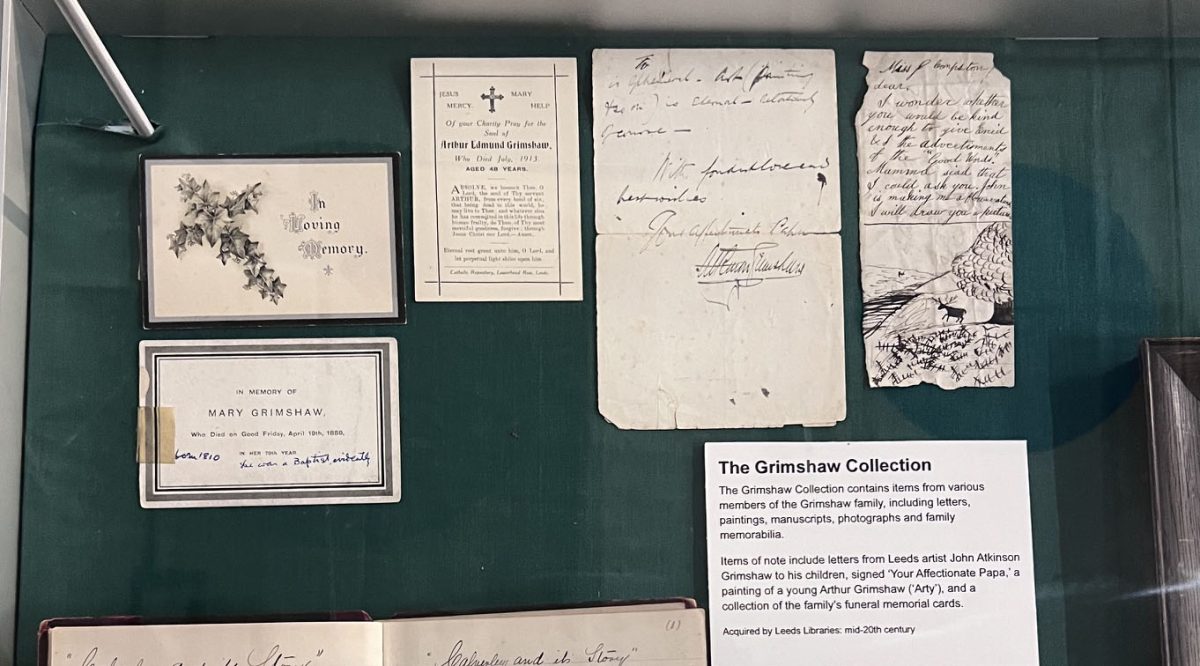 In
Loving
Memory.
IN MEMORY OF
MARY GRIMSHAW,
Who Died on Good Friday, April 19th, 1889,
IN HER 79TH YEAR
born 1810
She was a Baptist evidently
JESUS MARY
MERCY. HELP
Of your Charity Pray for the
Soul of
Arthur Edmund Grimshaw,
Who Died July, 1913
AGED 48 YEARS.
ABSOLVE, we beseech Thee, O
Lord, the soul of Thy servant
ARTHUR, from every bond of sin,
that being dead to this world, he
may live to Thee; and whatever sins
he has committed in this life through
human frailty, do Thou, of Thy most
merciful goodness, forgive, through
Jesus Christ our Lord.—Amen.
Eternal rest grant unto him, O Lord, and
let perpetual light shine upon him.
Catholic Repository, Lowerhead Row, Leeds.
is ephemeral — Art (painting
is eternal —
With fondest love and
best wishes
Your affectionate Papa
Atkinson Grimshaw
Miss Compston
dear,
I wonder whether
you would be kind
enough to give Enid
& I the advertisments
of the "Good Words".
Mamma said that
I could ask you. John
is making me a
I will draw you a picture
The Grimshaw Collection
The Grimshaw Collection contains items from various
members of the Grimshaw family, including letters,
paintings, manuscripts, photographs and family
memorabilia.
Items of note include letters from Leeds artist John Atkinson
Grimshaw to his children, signed ‘Your Affectionate Papa,’ a
painting of a young Arthur Grimshaw (‘Arty’), and a
collection of the family’s funeral memorial cards.
Acquired by Leeds Libraries: mid-20th century
"Calverley and its Story"
(1)
"Calverley and its Story"